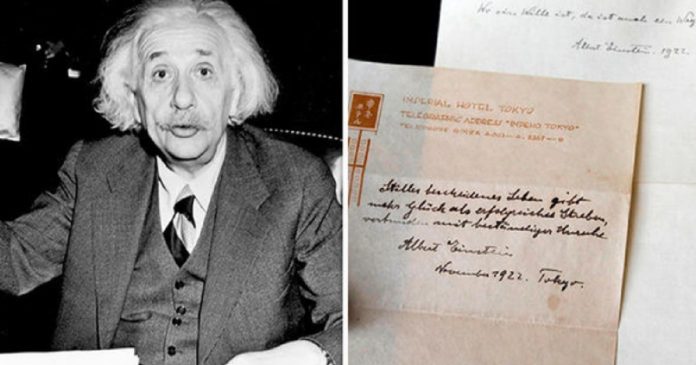 Wo ein Wille ist, da ist auch ein Weg
Albert Einstein. 1922.
帝国ホテル
IMPERIAL HOTEL TOKYO
TELEGRAPHIC ADDRESS "IMPEHO TOKYO"
Stilles bescheidenes Leben gibt
mehr Glück als erfolgreiches Streben,
verbunden mit beständiger Unruhe
Albert Einstein
November 1922. Tokyo.